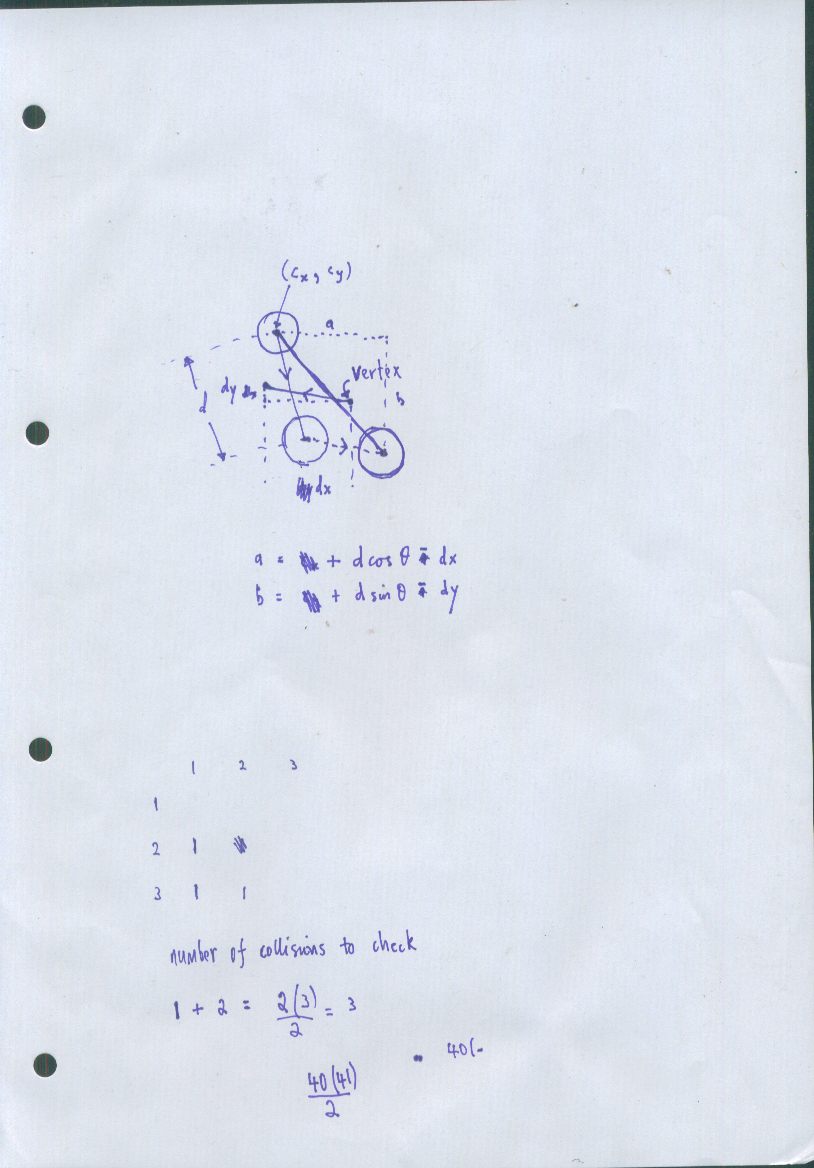 (cx, cy)
a
vertex
dy
b
d
dx
a = + d cos θ - dx
b = + d sin θ - dy
1 2 3
1
2 1
3 1 1
number of collisions to check
1 + 2 = 2(3)/2 = 3
40(-
40(41)/2